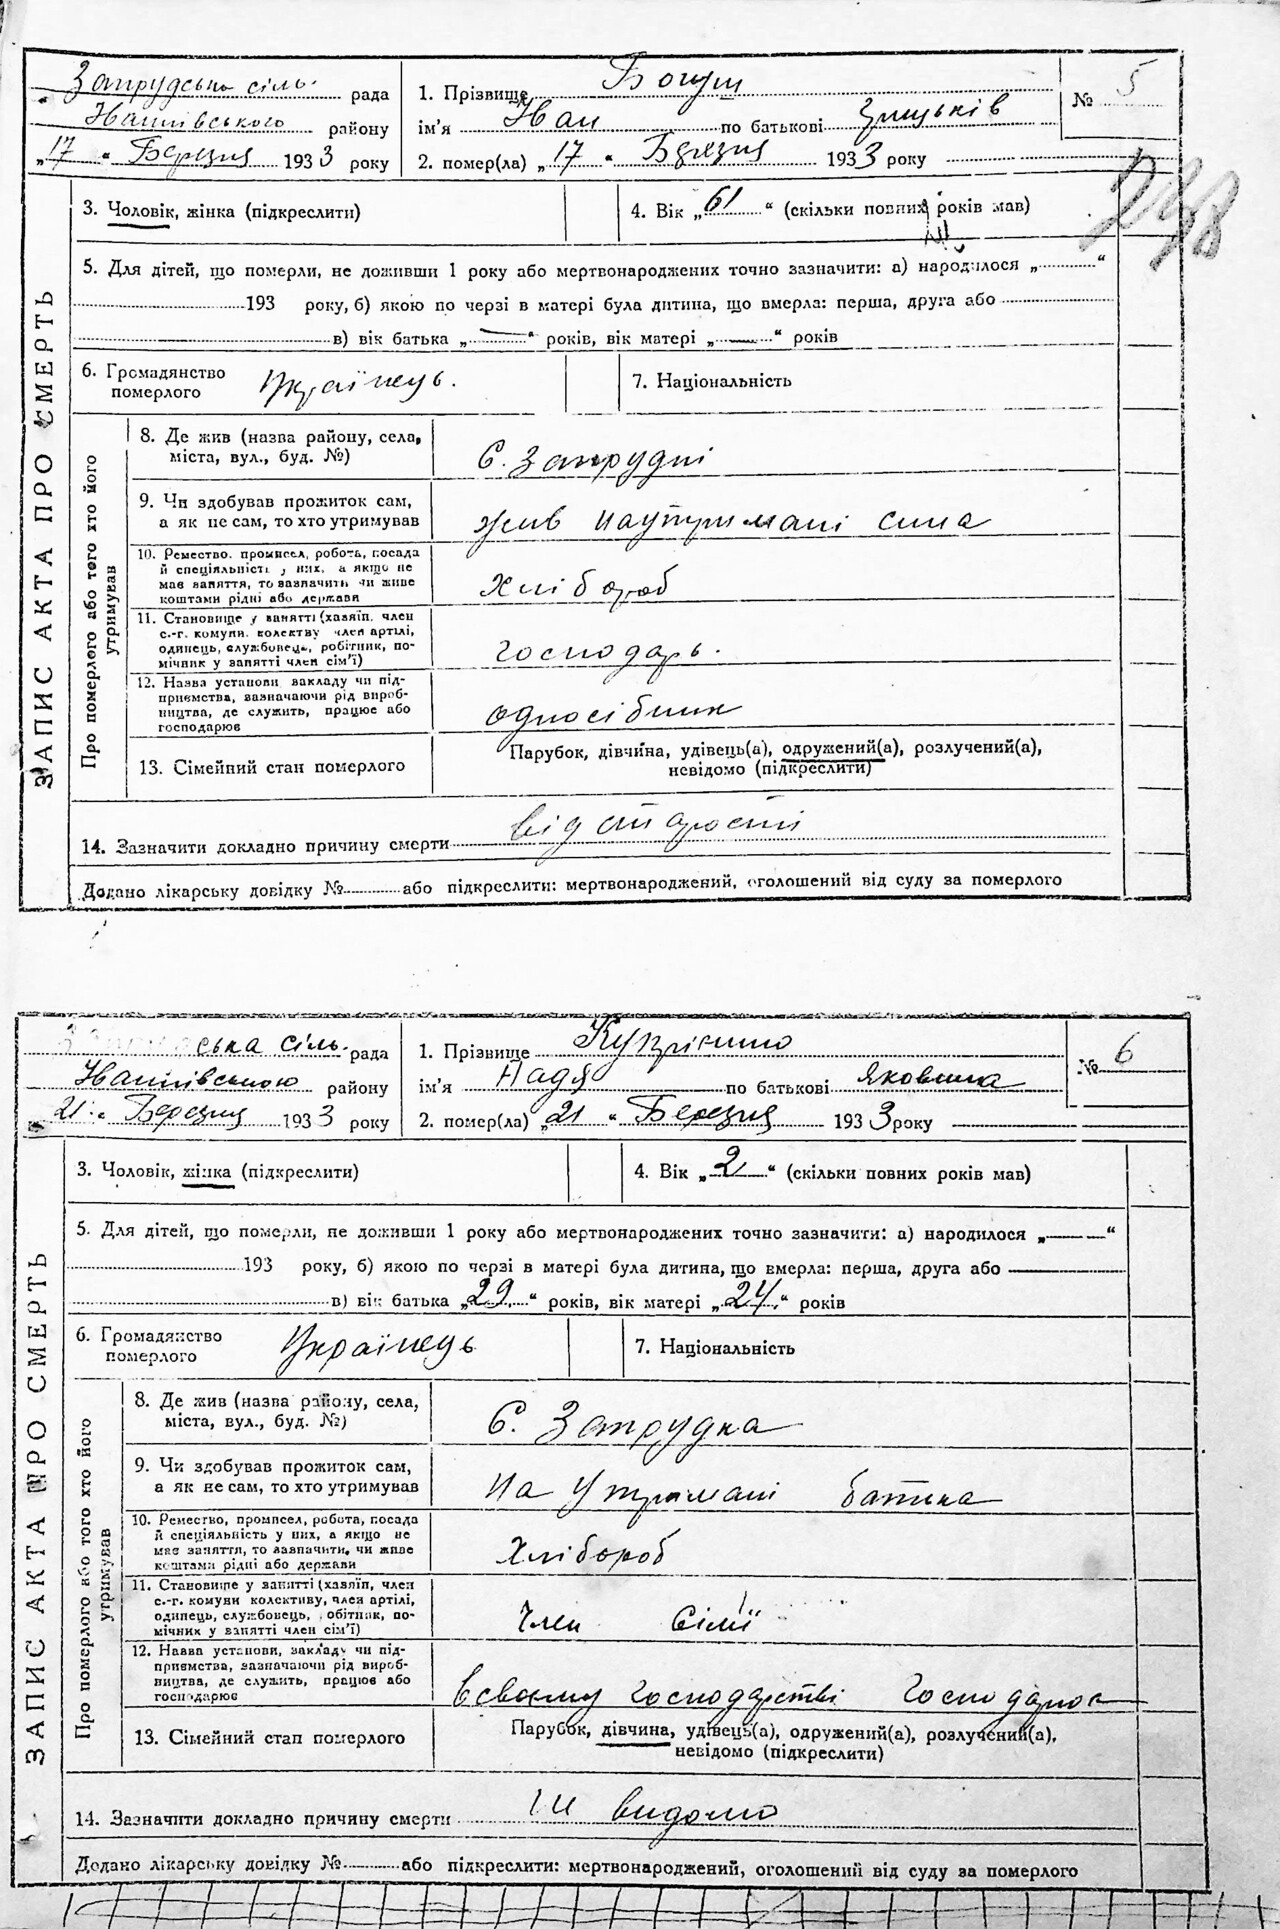 Запрудська сіль. рада
району
„17“ Березня 1933 року
1. Прізвище Богуш
ім'я Іван по батькові Грицьків
2. помер(ла) „17“ Березня 1933 року
№ 5
ЗАПИС АКТА ПРО СМЕРТЬ
3. Чоловік, жінка (підкреслити)
4. Вік „61“ (скільки повних років мав)
5. Для дітей, що померли, не доживши 1 року або мертвонароджених точно зазначити: а) народилося „ “
193 року, б) якою по черзі в матері була дитина, що вмерла: перша, друга або
в) вік батька „—“ років, вік матері „—“ років
6. Громадянство
померлого
Українець.
7. Національність
Про померлого або того хто його
утримував
8. Де жив (назва району, села,
міста, вул., буд. №)
С. Запрудні
9. Чи здобував прожиток сам,
а як не сам, то хто утримував
жив наутримані сина
10. Ремество, промисел, робота, посада
й спеціяльність у них, а якщо не
має заняття, то зазначити чи живе
коштами рідні або держави
Хлібороб
11. Становище у занятті (хазяїн, член
с.-г. комуни, колективу член артілі,
одинець, службовець, робітник, по-
мічник у занятті член сім'ї)
господарь.
12. Назва установи закладу чи під-
приємства, зазначаючи рід вироб-
ництва, де служить, працює або
господарює
односібник
13. Сімейний стан померлого
Парубок, дівчина, удівець(а), одружений(а), розлучений(а),
невідомо (підкреслити)
14. Зазначити докладно причину смерти від старості
Додано лікарську довідку № або підкреслити: мертвонароджений, оголошений від суду за померлого
ська сіль. рада
району
21 Березня 1933 року
1. Прізвище
ім'я Надя по батькові Яковина
2. помер(ла) „21“ Березня 1933 року
№ 6
ЗАПИС АКТА ПРО СМЕРТЬ
3. Чоловік, жінка (підкреслити)
4. Вік „2“ (скільки повних років мав)
5. Для дітей, що померли, не доживши 1 року або мертвонароджених точно зазначити: а) народилося „——“
193 року, б) якою по черзі в матері була дитина, що вмерла: перша, друга або
в) вік батька „29.“ років, вік матері „24.“ років
6. Громадянство
померлого
Українець
7. Національність
Про померлого або того хто його
утримував
8. Де жив (назва району, села,
міста, вул., буд. №)
С. Запрудка
9. Чи здобував прожиток сам,
а як не сам, то хто утримував
на утримані батька
10. Ремество, промисел, робота, посада
й спеціяльність у них, а якщо не
має заняття, то зазначити, чи живе
коштами рідні або держави
Хлібороб
11. Становище у занятті (хазяїн, член
с.-г. комуни колективу, член артілі,
одинець, службовець, робітник, по-
мічних у занятті член сім'ї)
Член Сімї
12. Назва установи, закладу чи під-
приємства, зазначаючи рід вироб-
ництва, де служить, працює або
господарює
всвоєму господарстві
13. Сімейний стан померлого
Парубок, дівчина, удівець(а), одружений(а), розлучений(а),
невідомо (підкреслити)
14. Зазначити докладно причину смерти ни видомо
Додано лікарську довідку № або підкреслити: мертвонароджений, оголошений від суду за померлого